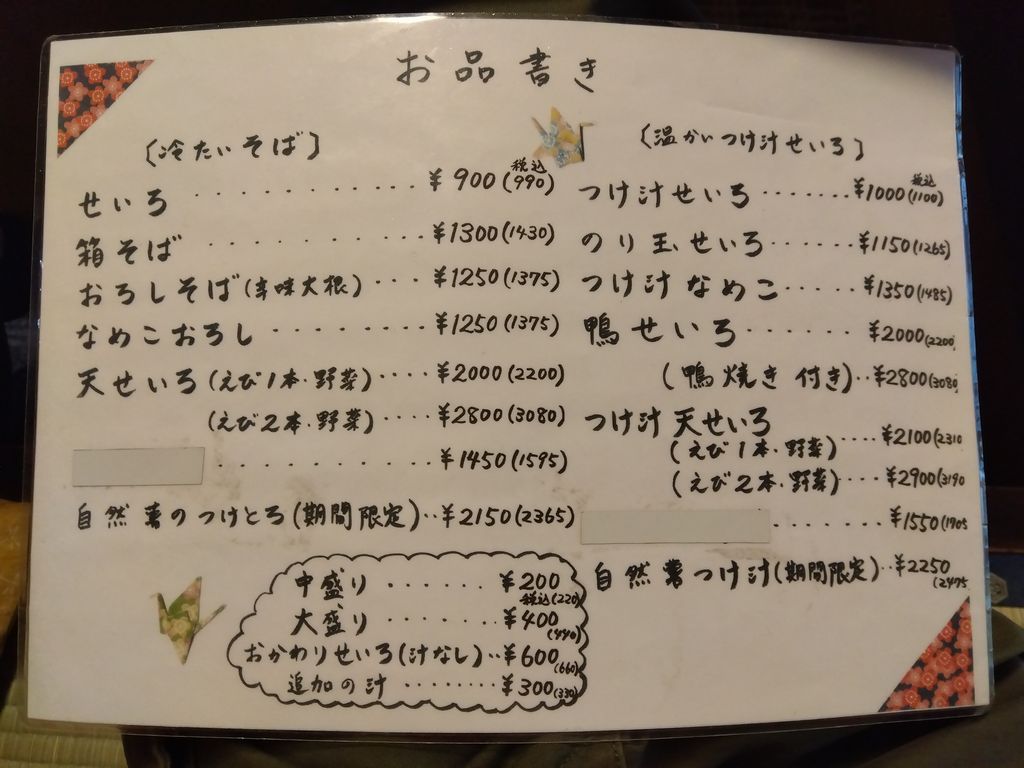 お品書き
〔冷たいそば〕
せいろ ・・・・・・・・・・・ ¥900(税込990)
箱そば ・・・・・・・・・・・ ¥1300(1430)
おろしそば(辛味大根) ・・・・ ¥1250(1375)
なめこおろし ・・・・・・・・ ¥1250(1375)
天せいろ(えび1本・野菜) ・・・・ ¥2000(2200)
(えび2本・野菜) ・・・・ ¥2800(3080)
・・・・・・・・・・・ ¥1450(1595)
自然薯のつけとろ(期間限定)・・¥2150(2365)
〔温かいつけ汁せいろ〕
つけ汁せいろ ・・・・・・ ¥1000(税込1100)
のり玉せいろ ・・・・・・ ¥1150(1265)
つけ汁なめこ ・・・・・ ¥1350(1485)
鴨せいろ ・・・・・・・ ¥2000(2200)
(鴨焼き付き)・・¥2800(3080)
つけ汁天せいろ
(えび1本・野菜) ・・・・ ¥2100(2310
(えび2本・野菜) ・・・ ¥2900(3190
・・・・・・・ ¥1550(1705
自然薯つけ汁(期間限定)・・¥2250(2475
中盛り ・・・・・・・ ¥200
税込(220)
大盛り ・・・・・・・ ¥400
(440)
おかわりせいろ(汁なし)・・¥600(660)
追加の汁 ・・・・・・・・ ¥300(330)